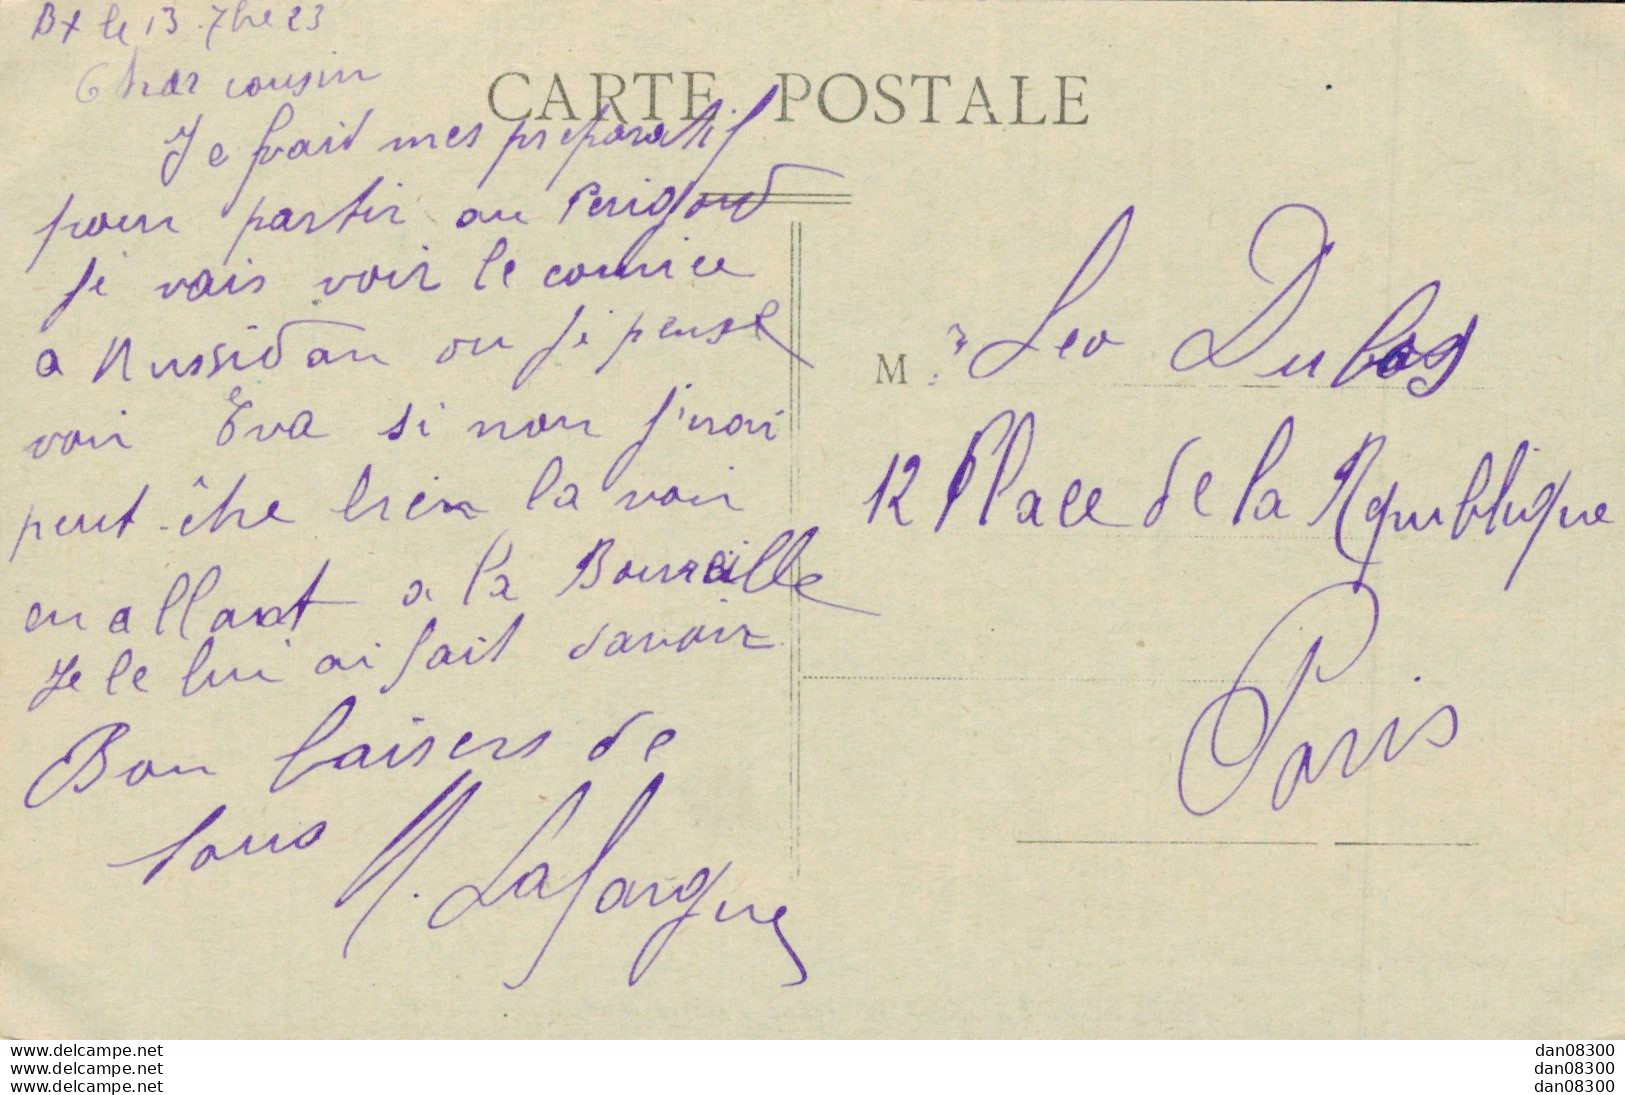 Bx le 13 7bre 23
Cher cousin
CARTE POSTALE
Je fait mes preparatif
pour partir au Perigord
je vais voir le comice
a Mussidan ou je pense
voir Eva si non j'irai
peut-être bien la voir
en allant a la Boureille
Je le lui ai fait savoir
Bon baisers de
tous M. Lafargue
M r Leo Dubos
12 Place de la Republique
Paris
www.delcampe.net
www.delcampe.net
www.delcampe.net
dan08300
dan08300
dan08300